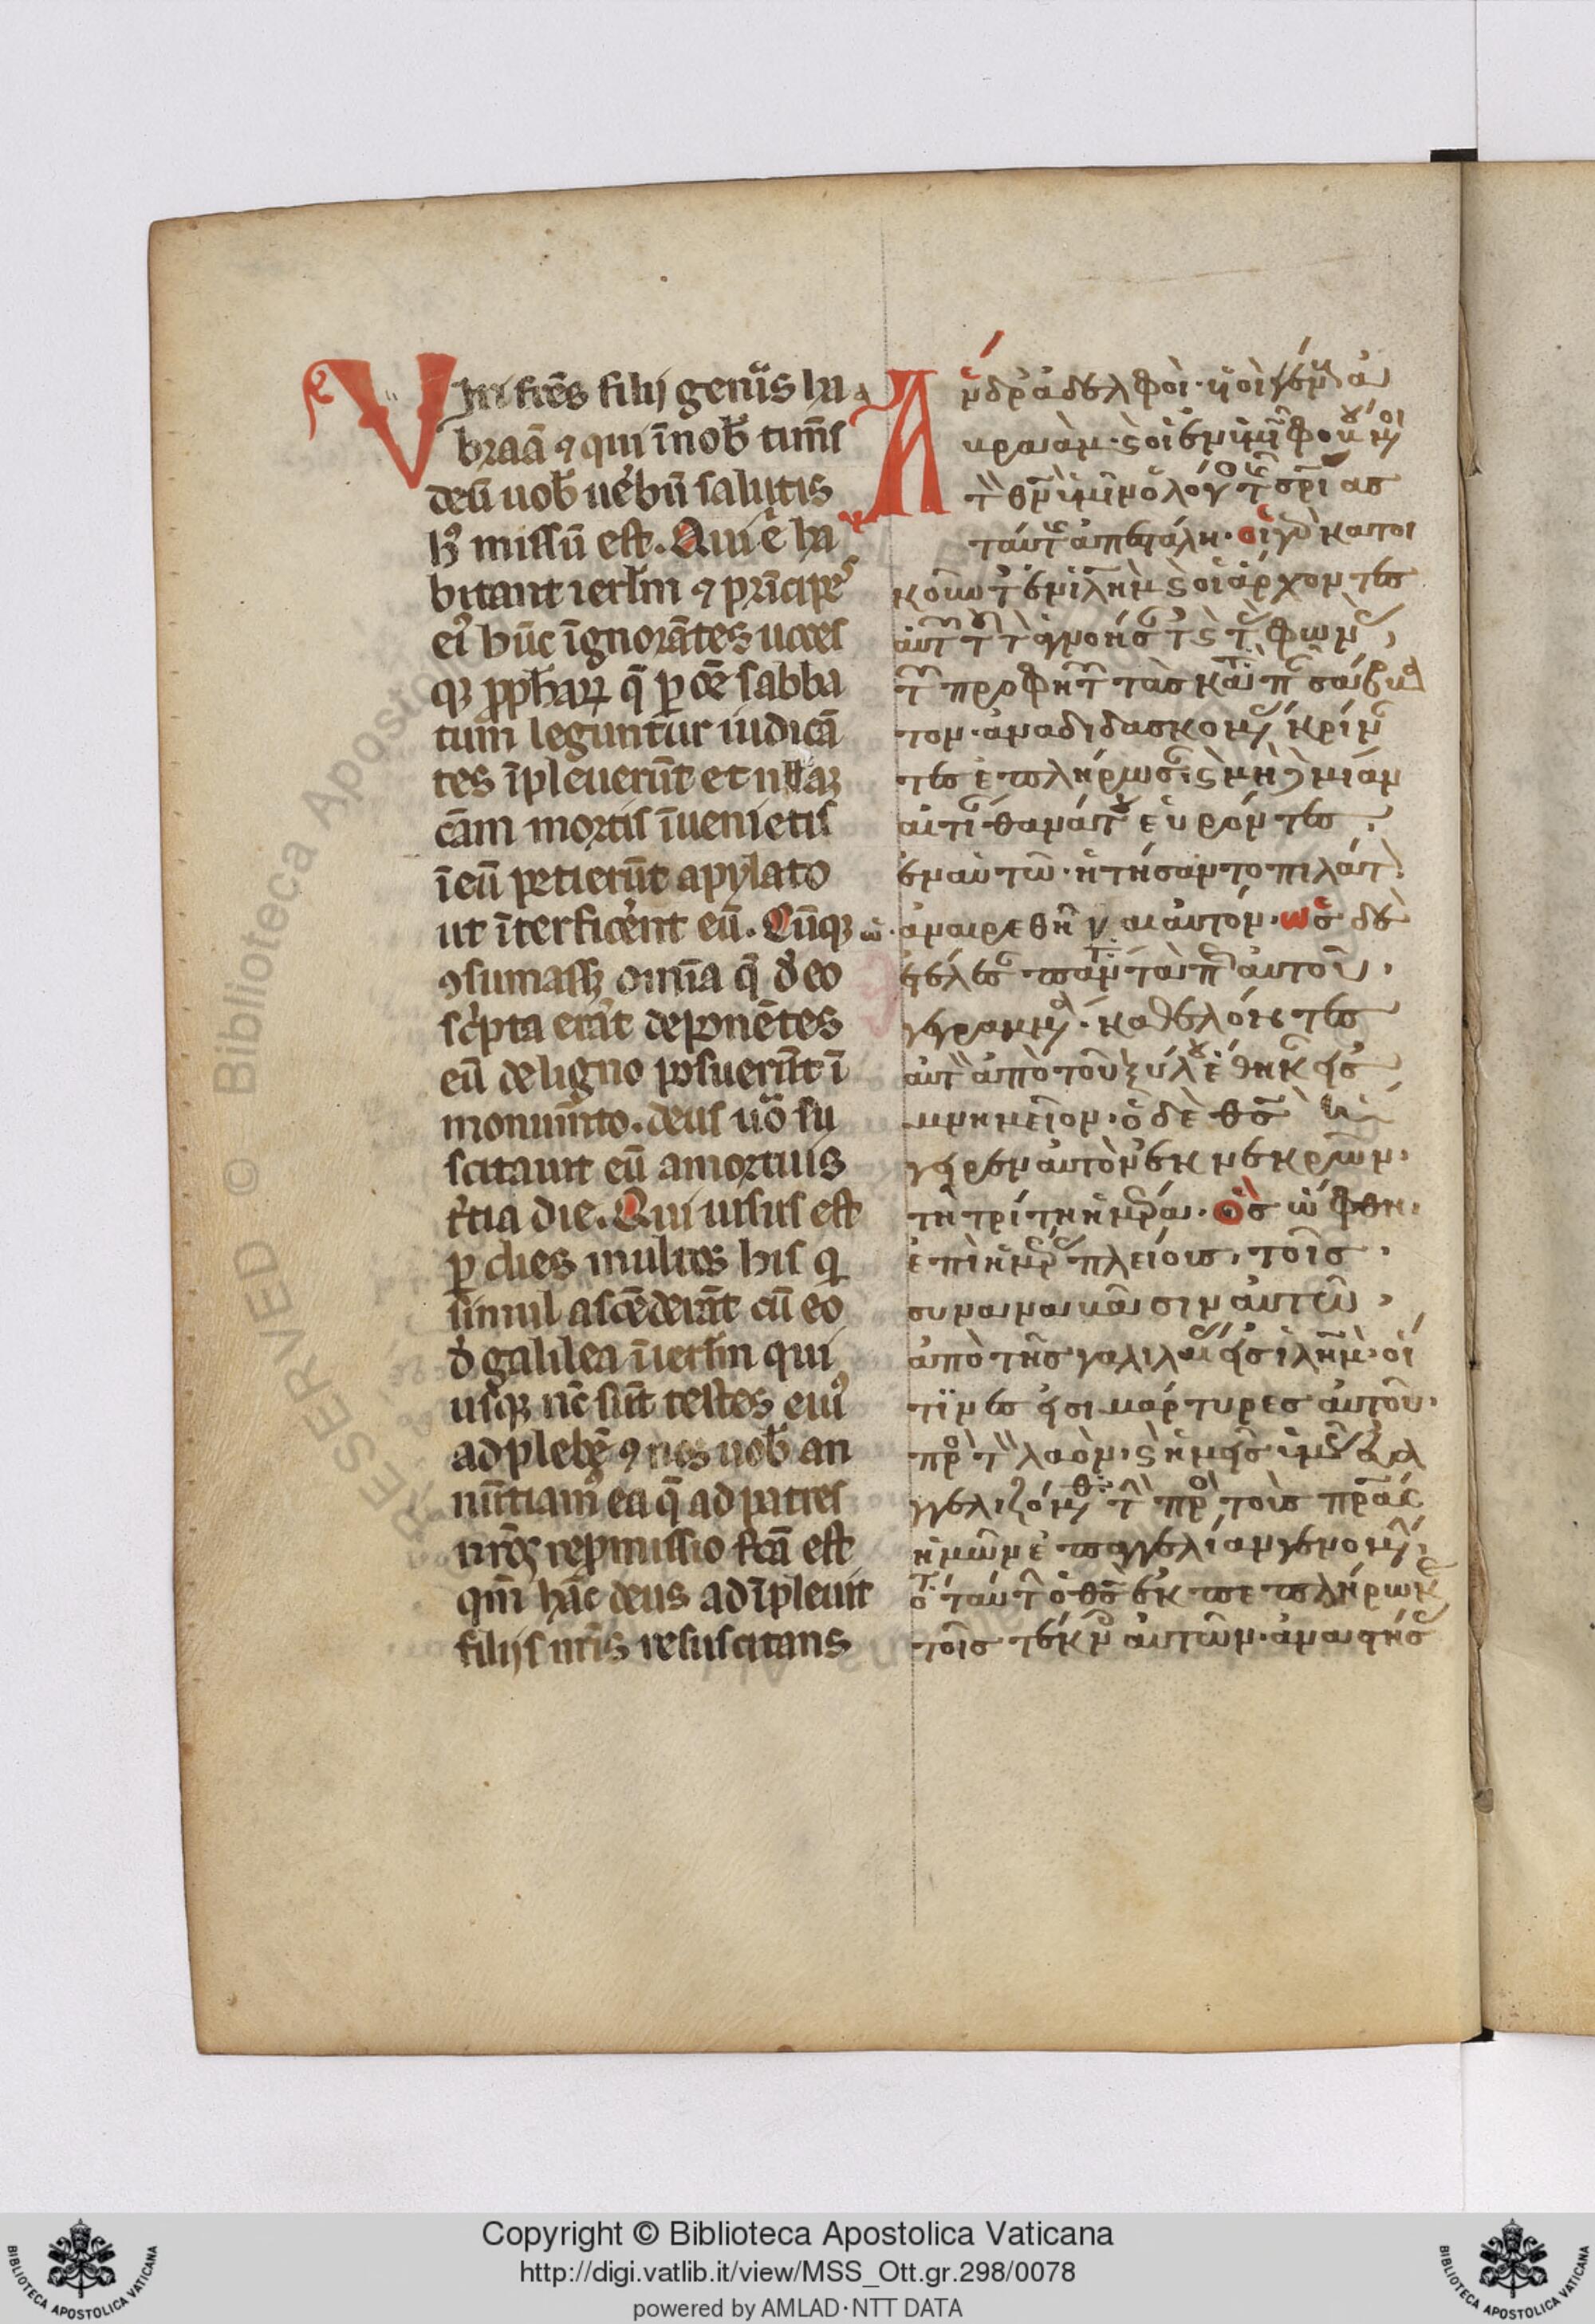 Viri fr̄es filij gen̄is ha
braā ⁊ qui ī uob̄ tim̄t
deū uob̄ uerbū salutis
hꝰ missū est. Qui .e. ha
bitant ierl̄m ⁊ prīcipeˢ
eiꝰ hūc īgnorātes uoces
qꝫ ꝓph̄aꝝ q̄ ꝑ oē sabba
tum leguntur iudicā
tes īpleuerūt et nullāꝫ
cām mortis īuenietis
ī eū petierūt a pylato
ut īterficerēt eū. Cūqꝫ
ꝯsumassꝫ omīa q̄ d̄ eo
scͥpta erāt deponētes
eū de ligno posuerūt ī
monum̄to. deus uͦo su
scitauit eū a mortuis
tͨtia die. Qui uisus est
ꝑ dies multos his q
simul ascēderāt cū eo
d̄ galilea ī ierl̄m qui
usqꝫ nc̄ sūt testes eiuꝰ
ad plebē ⁊ nos uob̄ an
nūtiamꝰ ea q̄ ad patres
nr̄os repmissio fc̄a est
qm̄ hāc deus adīpleuit
filijs nr̄is resuscitans
Ἄνδρ ἀδελφοὶ· υἱοὶ γέν ἀ
βραὰμ· ϛ οἱ ἐν ὑμῖ φοβούμοι
τ θν ὑμῖν ὁ λόγ τ σρίας
ταύτ ἀπεστάλη· οἱ γὰρ κατοι
κοῦντ ἐν ἰλημ ϛ οἱ ἄρχοντες
αὐτ τ τ ἀγνοήσ τ ϛ τ φων
τ προφητ τὰς κατ π σάββα
τον· ἀναδιδασκομ κρίν
τες ἐπλήρωσ ϛ μη μίαν
αἰτί θανάτου εὑρόντες
ἐν αὐτῶ· ἠτήσαντο πιλάτ
ἀναιρεθῆναι αὐτόν· ὡς δὲ
ἐτέλεσ πάντ τὰ π αὐτοῦ
γεγραμμ· καθελόντες
αὐτ ἀπὸ τοῦ ξύλου ἔθηκ εἰς
μνημεῖον· ὁ δὲ θς ἤ
γειρεν αὐτὸν ἐκ νεκρῶν·
τῆ τρίτη ἡμέρα· ὃς ὤφθη
ἐπὶ ἡμέρ πλείοις· τοῖς
συναναβᾶσιν αὐτῶ
ἀπὸ τῆς γαλιλαί εἰς ἰλημ· οἵ
τινες εἰσι μάρτυρες αὐτοῦ·
πρ τ λαόν· ϛ ἡμεῖς ὑμ εὐα
γγελιζόμεθ τ πρ τοὺς πρας
ἡμῶν ἐπαγγελίαν γενομ
ὅτ ταύτ ὁ θς ἐκπεπλήρωκ
τοῖς τέκν αὐτῶν· ἀναστήσ
Copyright © Biblioteca Apostolica Vaticana
http://digi.vatlib.it/view/MSS_Ott.gr.298/0078
powered by AMLAD·NTT DATA